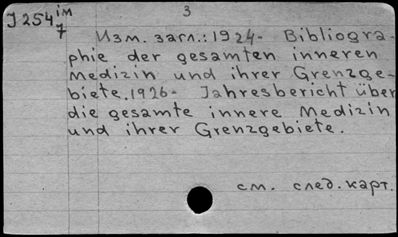 J 254 iм/7
3
Изм. загл.: 1924- Bibliogra-
phie der gesamten inneren
Medizin und ihrer Grenzge-
biete. 1926- Jahresbericht über
die gesamte innere Medizin
und ihrer Grenzgebiete.
см. след. карт.